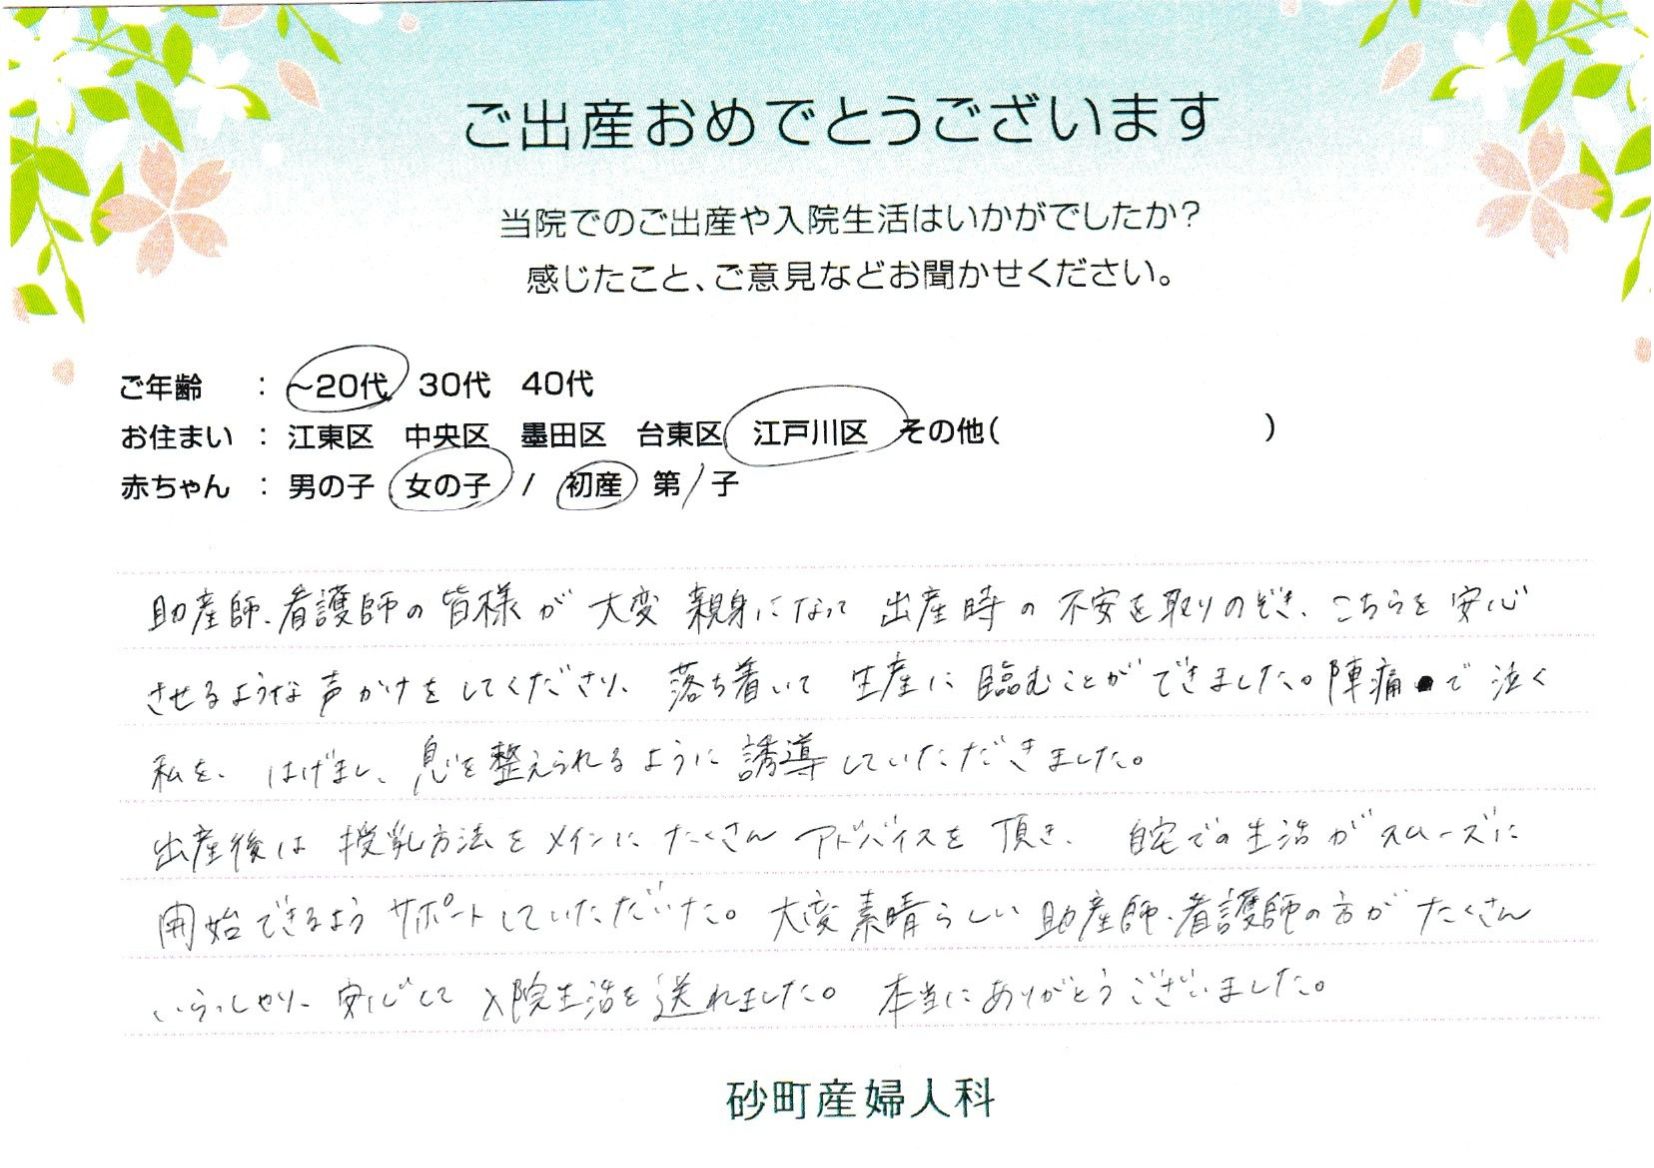 ご出産おめでとうございます
当院でのご出産や入院生活はいかがでしたか?
感じたこと、ご意見などお聞かせください。
ご年齢 : ~20代 30代 40代
お住まい : 江東区 中央区 墨田区 台東区 江戸川区 その他( )
赤ちゃん : 男の子 女の子 / 初産 第/子
助産師、看護師の皆様が大変親身になって出産時の不安を取りのぞき、こちらを安心
させるような声かけをしてくださり、落ち着いて生産に臨むことができました。陣痛で泣く
私を、はげまし、息を整えられるように誘導していただきました。
出産後は授乳方法をメインにたくさんアドバイスを頂き、自宅での生活がスムーズに
開始できるようサポートしていただいた。大変素晴らしい助産師、看護師の方がたくさん
いらっしゃり、安心して入院生活を送れました。本当にありがとうございました。
砂町産婦人科